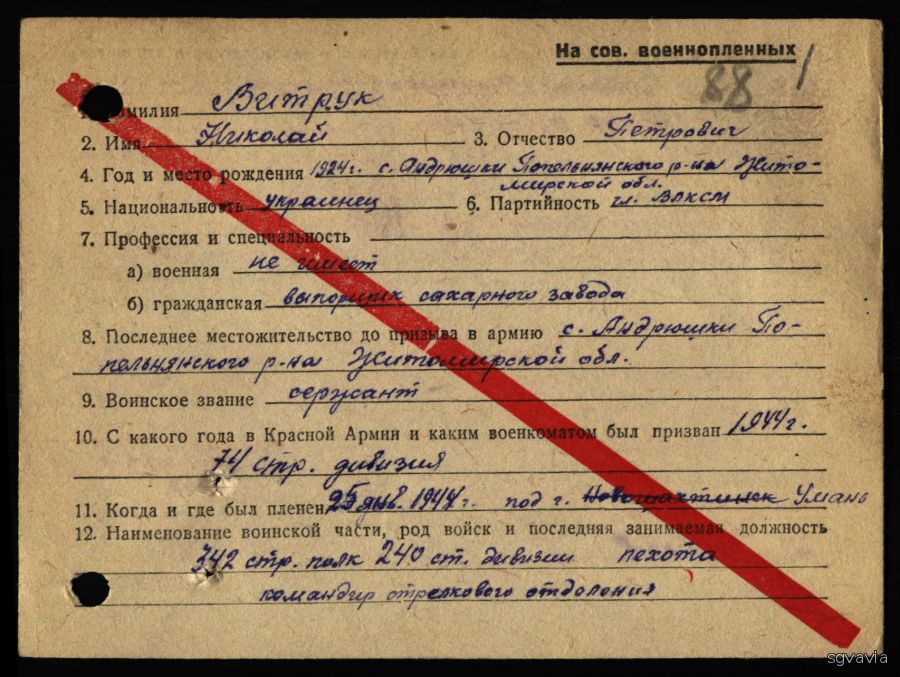 На сов. военнопленных
88
1. Фамилия Витрук
2. Имя Николай 3. Отчество Петрович
4. Год и место рождения 1924 г. с. Андрюшки Попельнянского р-на Жито-
мирской обл.
5. Национальность украинец 6. Партийность чл. ВЛКСМ
7. Профессия и специальность
а) военная не имеет
б) гражданская выпорщик сахарного завода
8. Последнее местожительство до призыва в армию с. Андрюшки По-
пельнянского р-на Житомирской обл.
9. Воинское звание сержант
10. С какого года в Красной Армии и каким военкоматом был призван 1944 г.
74 стр. дивизия
11. Когда и где был пленен 25 янв. 1944 г. под г. Умань
12. Наименование воинской части, род войск и последняя занимаемая должность
342 стр. полк 240 ст. дивизии пехота
командир стрелкового отделения
sgvavia